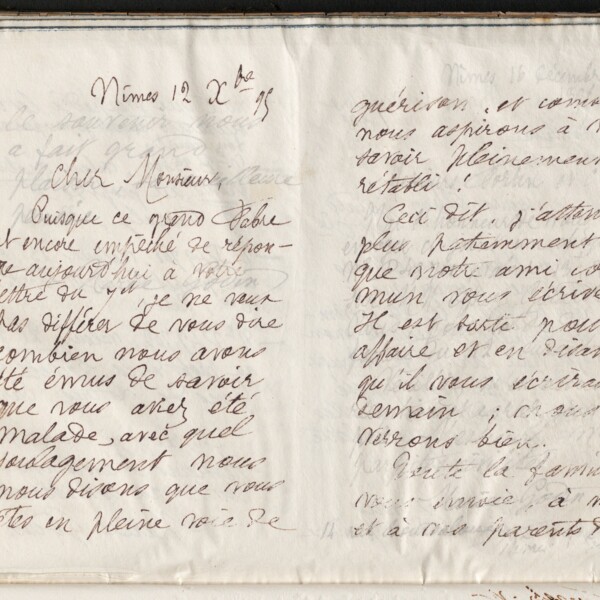 Nîmes 12 Xbre 95
Cher Monsieur,
Puisque ce grand Fabre
et encore empêché de répon-
re aujourd'hui à votre
ettre du 7 ct, je ne veux
pas différer de vous dire
combien nous avons
été émus de savoir
que vous aviez été
malade, avec quel
soulagement nous
nous disons que vous
êtes en pleine voie de
guérison, et com
nous aspirons à v
savoir pleinement
rétabli !
Ceci dit, j'atten
plus patiemment
que notre ami com
mun vous écrive
Il est sorti pour
affaire et en disan
qu'il vous écrira
demain ; nous
verrons bien.
Toute la famil
vous envoie, à v
et à vos parents d